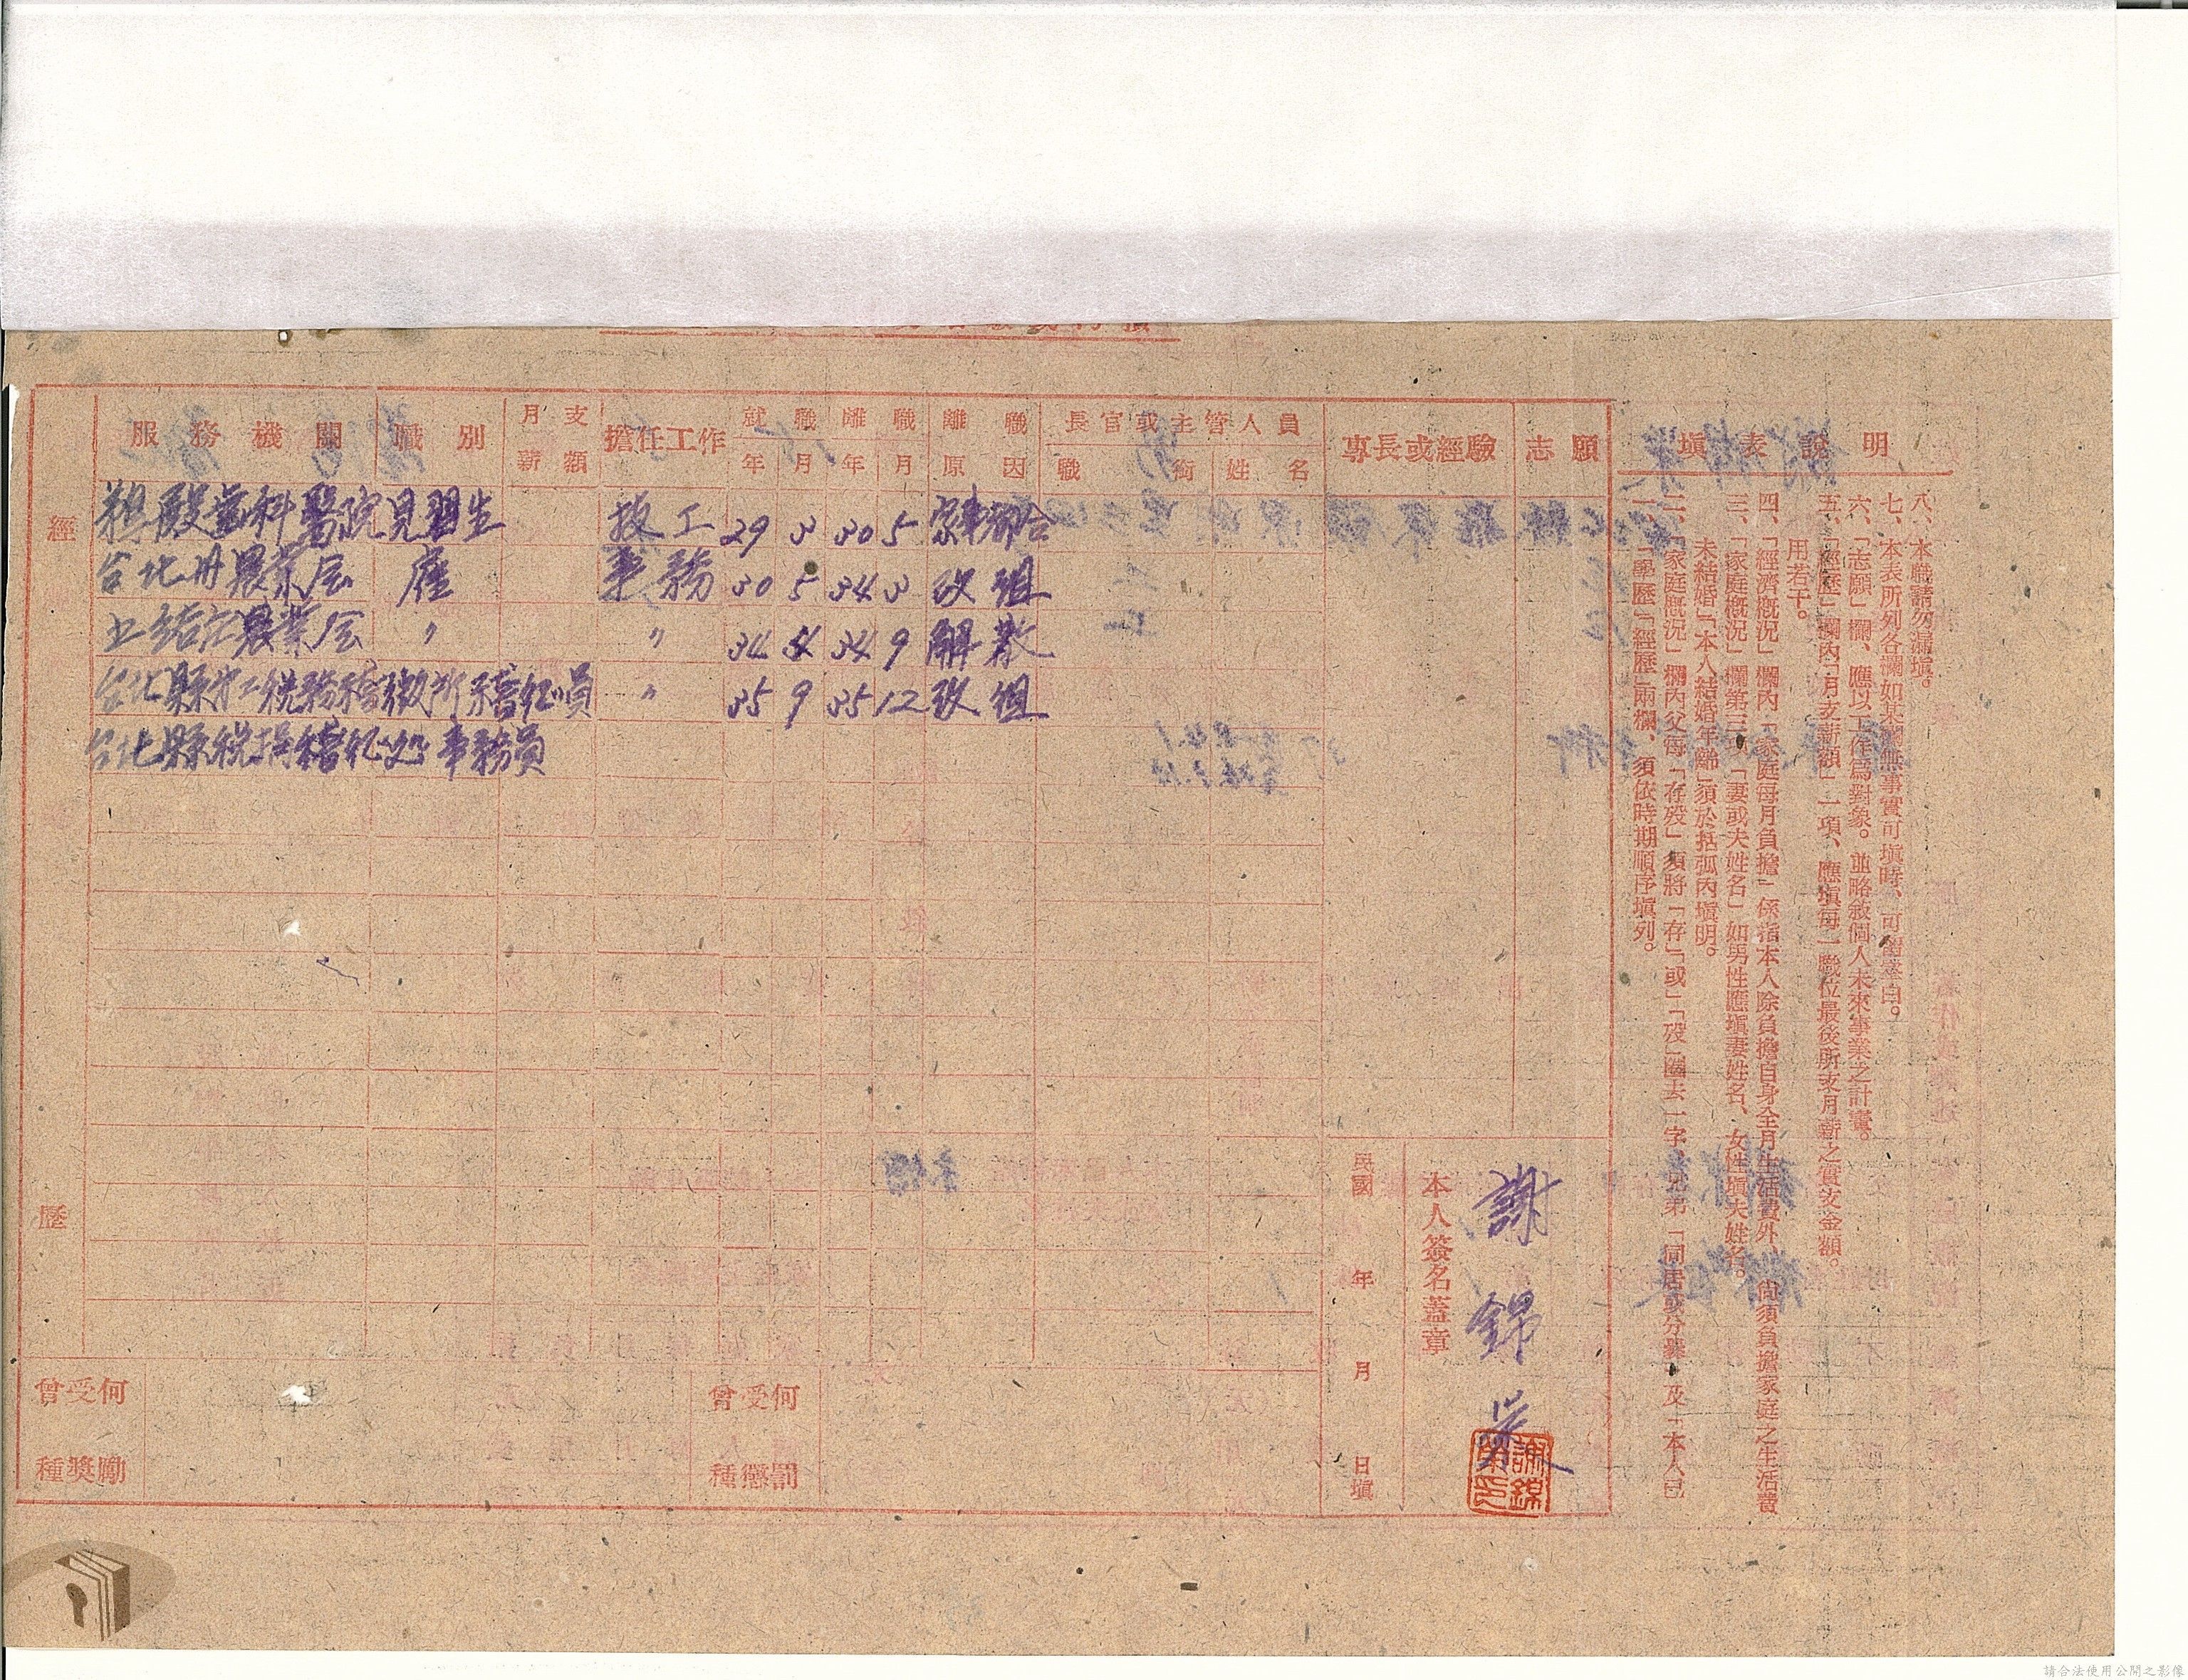 經歷
服務機關 職別 月支薪額 擔任工作 就職年月 離職年月 離職原因 長官或主管人員 職銜 姓名 專長或經驗 志願
齒科醫院 見習生 技工 29 3 30 5 家事都合
台北州農業会 雇 事務 30 5 34 3 改組
農業会 〃 〃 34 4 34 9 解散
台北縣 稅務稽徵所 稽征員 〃 35 9 35 12 改組
台北縣稅捐稽征处 事務員
曾受何種獎勵
曾受何種懲罰
民國 年 月 日填
本人簽名蓋章
謝錦
謝錦榮印
填表說明
一、「學歷」「經歷」兩欄、須依時期順序填列。
二、「家庭概況」欄內父母「存歿」須將「存」「或」「歿」圈去一字、兄弟「同居或分爨」及「本人已未結婚」「本人結婚年齡」須於括弧內填明。
三、「家庭概況」欄第三項「妻或夫姓名」如男性應填妻姓名、女性填夫姓名。
四、「經濟概況」欄內「家庭每月負擔」係指本人除負擔自身全月生活費外、尚須負擔家庭之生活費用若干。
五、「經歷」欄內「月支薪額」一項、應填每一職位最後所支月薪之實支金額。
六、「志願」欄、應以工作為對象。並略敘個人未來事業之計畫。
七、本表所列各欄如某欄無事實可填時、可留空白。
八、本職請勿漏填。
請合法使用公開之影像